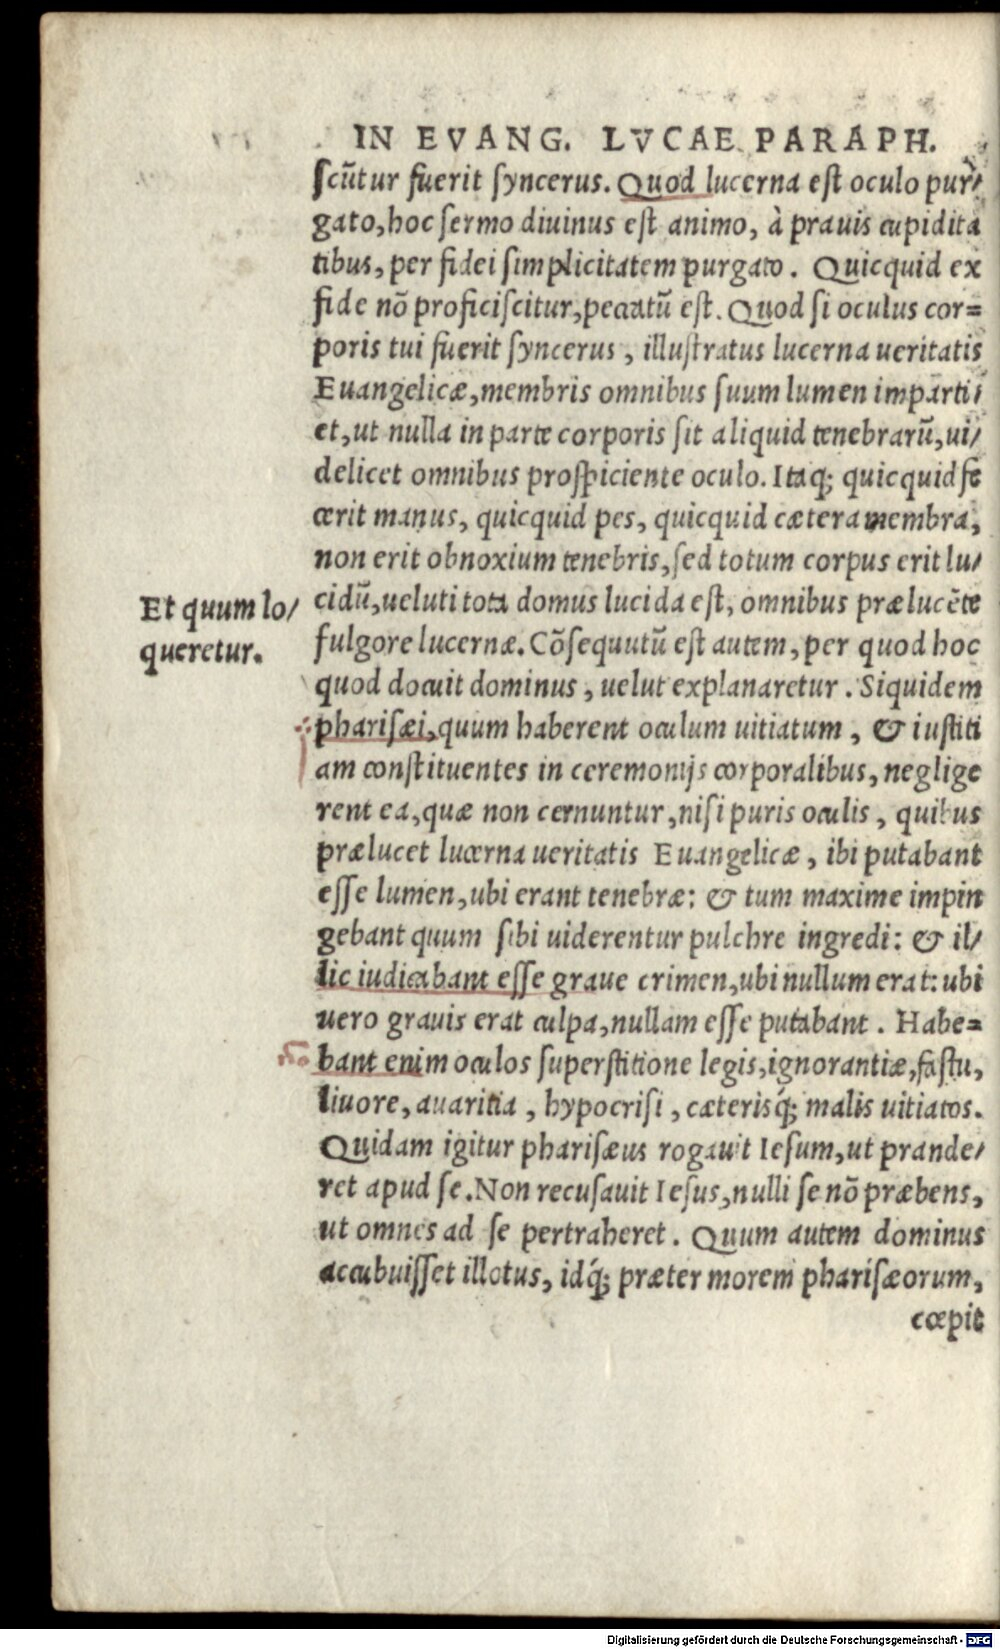 IN EVANG. LVCAE PARAPH.
scūtur fuerit syncerus. Quod lucerna est oculo pur/
gato, hoc sermo diuinus est animo, à prauis cupidita
tibus, per fidei simplicitatem purgato. Quicquid ex
fide nō proficiscitur, peccatū est. Quod si oculus cor=
poris tui fuerit syncerus, illustratus lucerna ueritatis
Euangelicæ, membris omnibus suum lumen imparti/
et, ut nulla in parte corporis sit aliquid tenebrarū, ui/
delicet omnibus prospiciente oculo. Itaq; quicquid fe
cerit manus, quicquid pes, quicquid cætera membra,
non erit obnoxium tenebris, sed totum corpus erit lu/
cidū, ueluti tota domus lucida est, omnibus prælucēte
fulgore lucernæ. Cōsequutū est autem, per quod hoc
quod docuit dominus, uelut explanaretur. Siquidem
pharisæi, quum haberent oculum uitiatum, & iustiti
am constituentes in ceremonijs corporalibus, neglige
rent ea, quæ non cernuntur, nisi puris oculis, quibus
prælucet lucerna ueritatis Euangelicæ, ibi putabant
esse lumen, ubi erant tenebræ: & tum maxime impin
gebant quum sibi uiderentur pulchre ingredi: & il/
lic iudicabant esse graue crimen, ubi nullum erat: ubi
uero grauis erat culpa, nullam esse putabant. Habe=
bant enim oculos superstitione legis, ignorantiæ, fastu,
liuore, auaritia, hypocrisi, cæterisq́; malis uitiatos.
Quidam igitur pharisæus rogauit Iesum, ut prande/
ret apud se. Non recusauit Iesus, nulli se nō præbens,
ut omnes ad se pertraheret. Quum autem dominus
accubuisset illotus, idq́; præter morem pharisæorum,
cœpit
Et quum lo/
queretur.
Digitalisierung gefördert durch die Deutsche Forschungsgemeinschaft - DFG